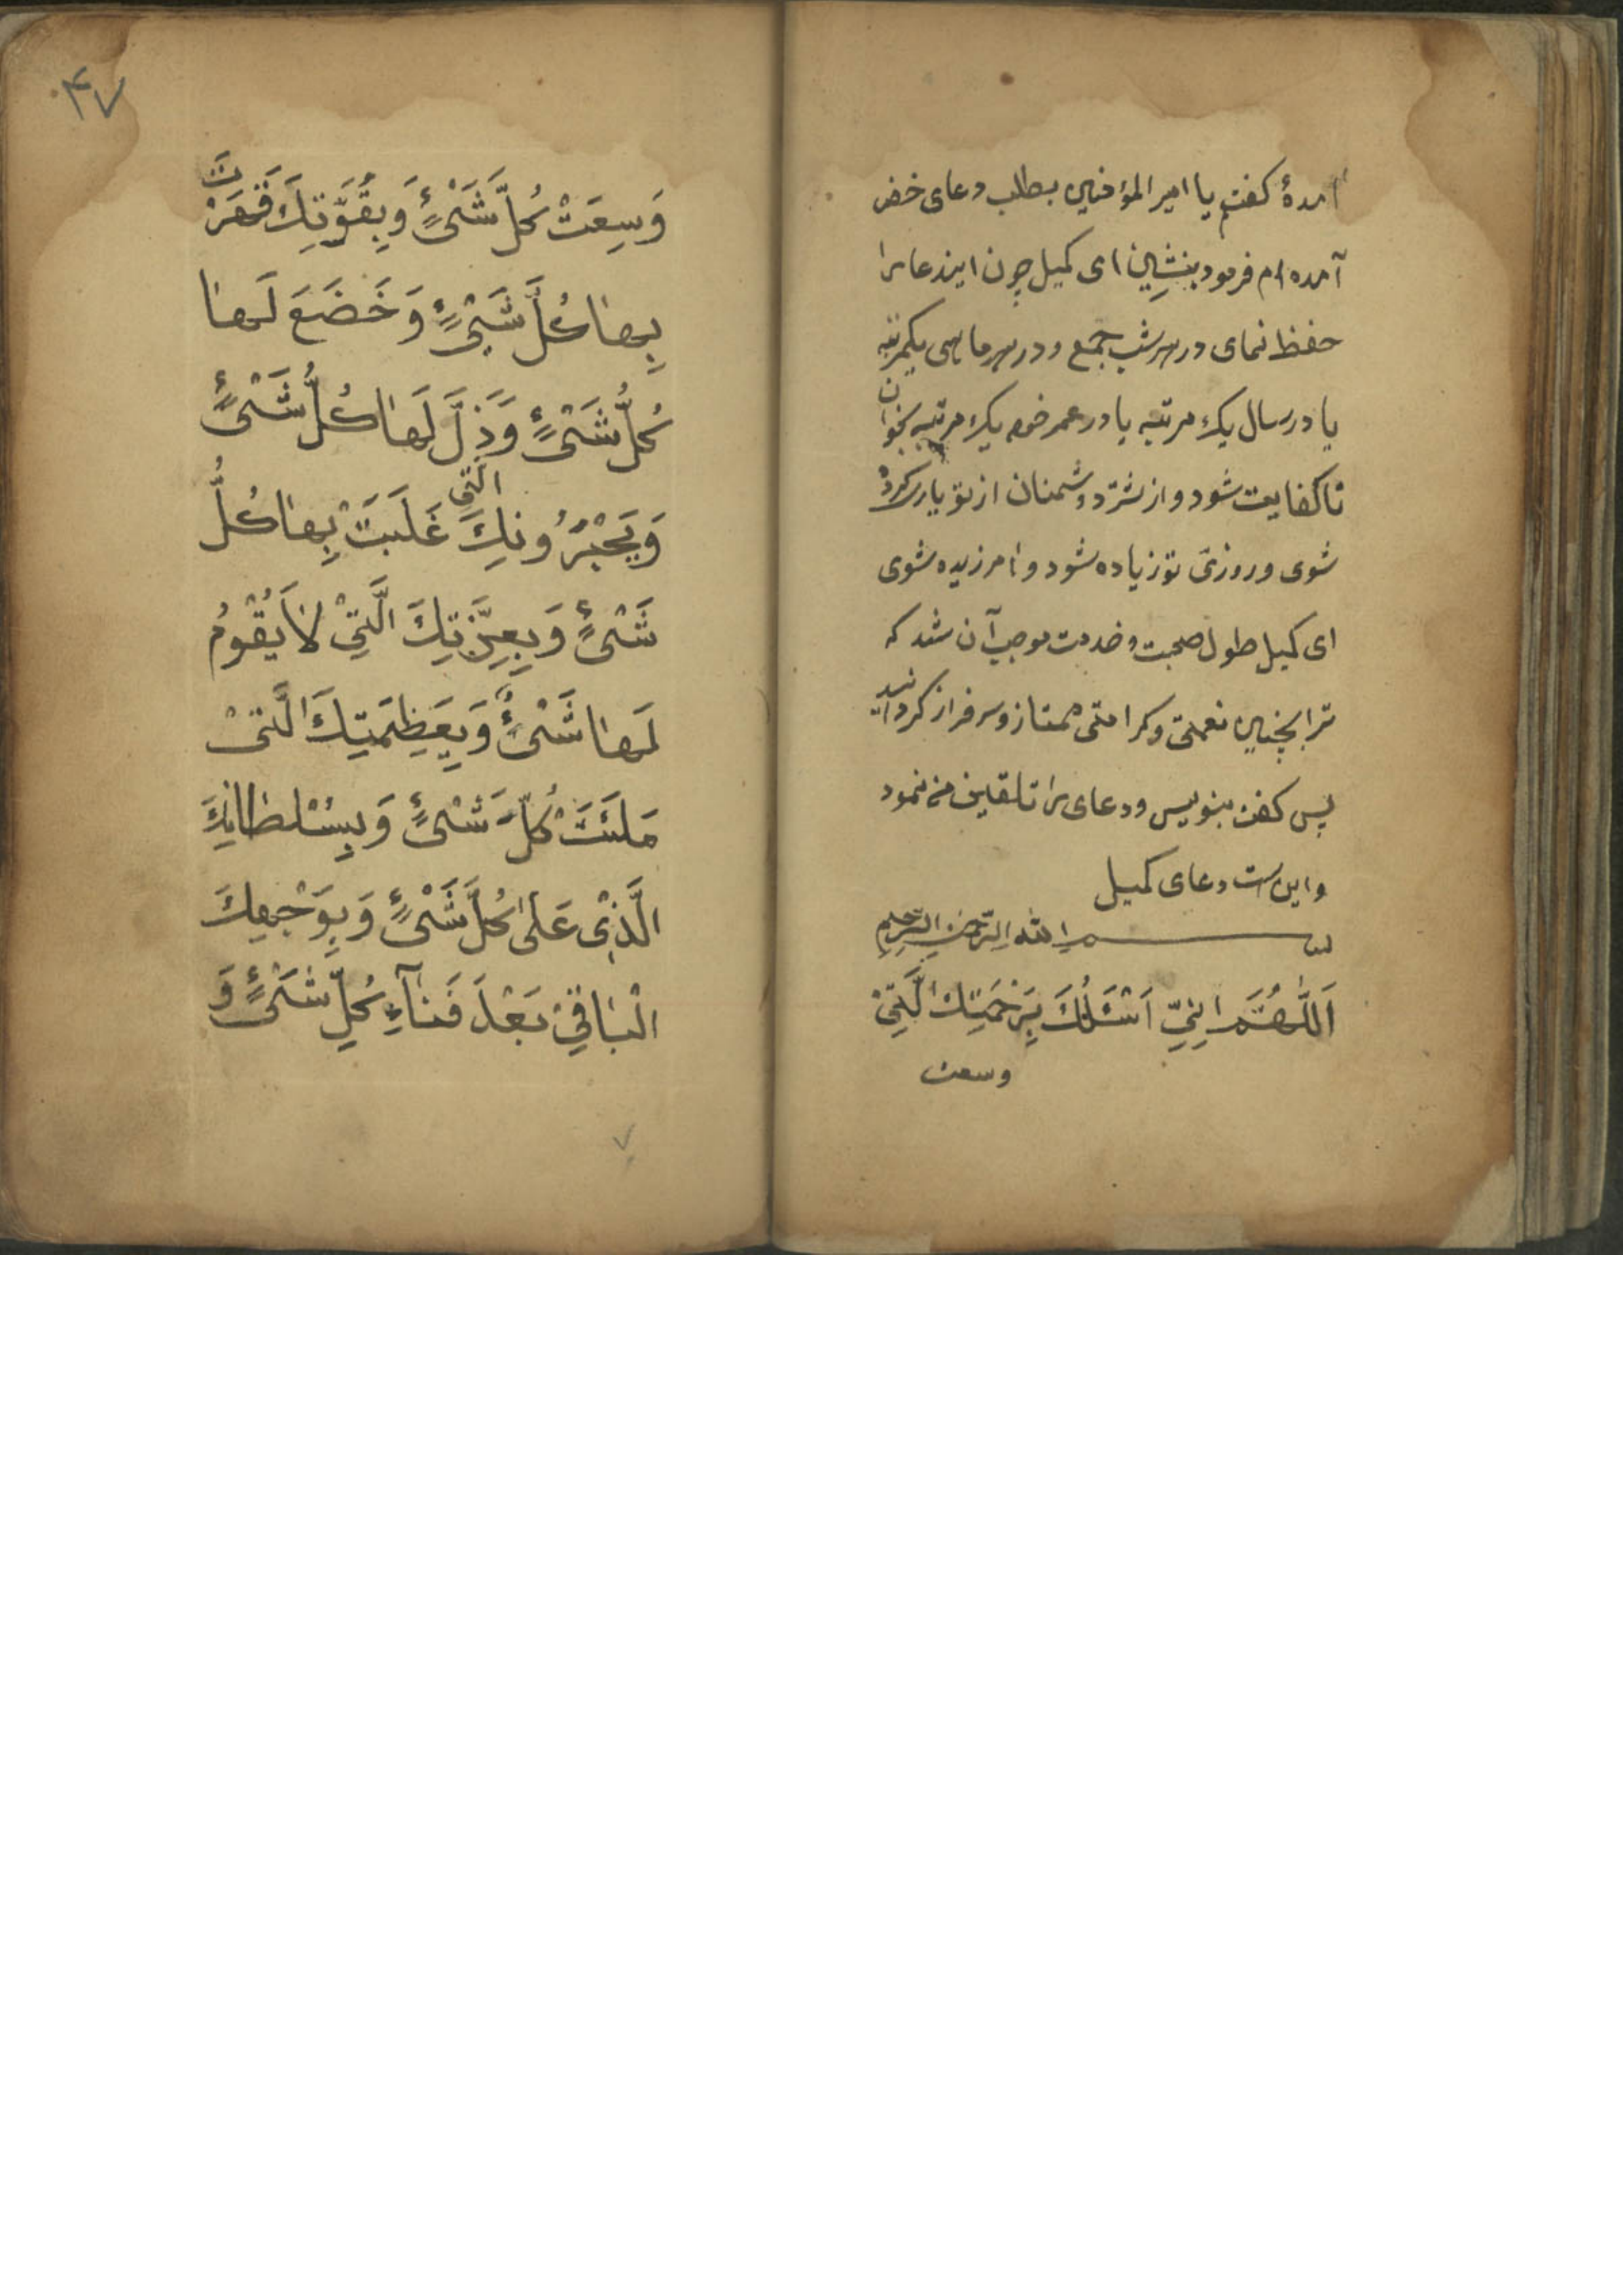 امدۀ کفتم یا امیر المؤمنین بطلب دعای خضر
آمده ام فرمود بنشین ای کمیل چون ایندعا را
حفظ نمای در هر شب جمع و در هر ماهی یکمرتبه
یا در سال یک مرتبه یا در عمر خود یک مرتبه بخوان
تا کفایت شود و از شرّ دشمنان از تو یاری کرده
شوی و روزی تو زیاده شود و امرزیده شوی
ای کمیل طول صحبت و خدمت موجب آن شد که
ترا بچنین نعمتی و کرامتی ممتاز و سرفراز کردانید
پس کفت بنویس و دعای را تلقین من نمود
و این است دعای کمیل
بسم الله الرّحمن الرّحیم
اَللّٰهُمَّ اِنِّیْ اَسْئَلُکَ بِرَحْمَتِکَ الَّتِیْ
وسعت
۴۷
وَسِعَتْ کُلَّ شَیْءٍ وَبِقُوَّتِکَ قَهَرْتَ
بِهٰا کُلَّ شَیْءٍ وَخَضَعَ لَهٰا
کُلُّ شَیْءٍ وَذَلَّ لَهٰا کُلُّ شَیْءٍ
وَبِجَبْرُوتِکَ الَّتِی غَلَبْتَ بِهٰا کُلَّ
شَیْءٍ وَبِعِزَّتِکَ الَّتِیْ لاٰ یَقُوْمُ
لَهٰا شَیْءٌ وَبِعَظِمَتِکَ الَّتیْ
مَلَئَتْ کُلَّ شَیْءٍ وَبِسُلْطٰانِکَ
الَّذِیْ عَلیٰ کُلَّ شَیْءٍ وَبِوَجْهِکَ
الْبٰاقِیْ بَعْدَ فَنٰآءِ کُلِّ شَیْءٍ وَ
۷